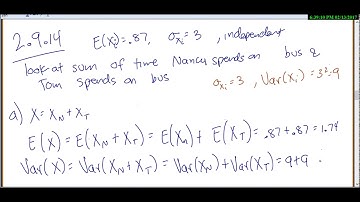 6:39:10 PM 02/13/2017
2.9.14 E(Xᵢ)=.87, σ_Xᵢ=3, independent
look at sum of time Nancy spends on bus &
Tom spends on bus
σ_Xᵢ=3, Var(Xᵢ)=3²=9
a) X=X_N+X_T
E(X)=E(X_N+X_T)=E(X_N)+E(X_T)=.87+.87=1.74
Var(X)=Var(X_N+X_T)=Var(X_N)+Var(X_T)=9+9